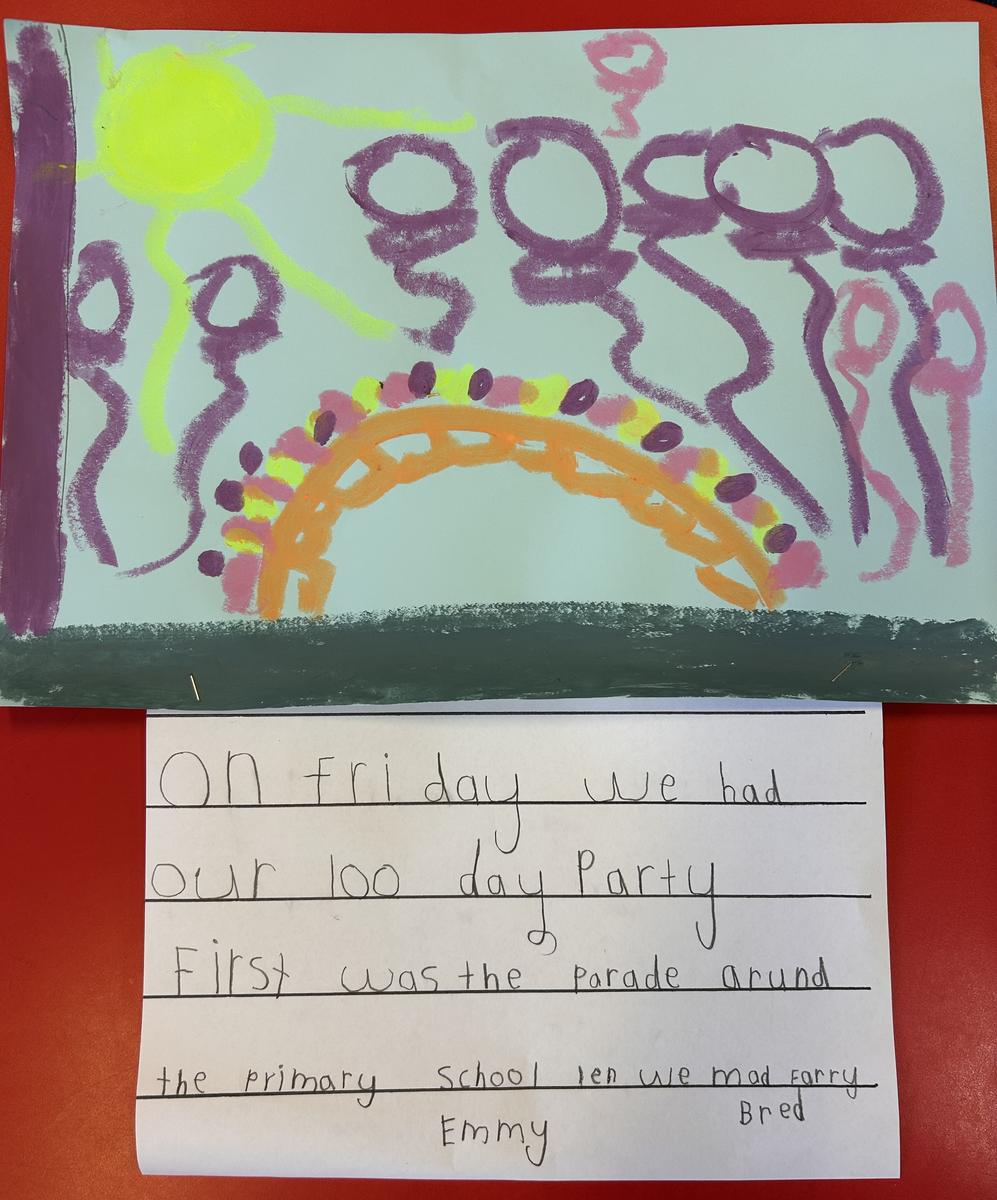 On friday we had
our 100 day Party
First was the parade arund
the primary School ten we mad Farry
Bred
Emmy